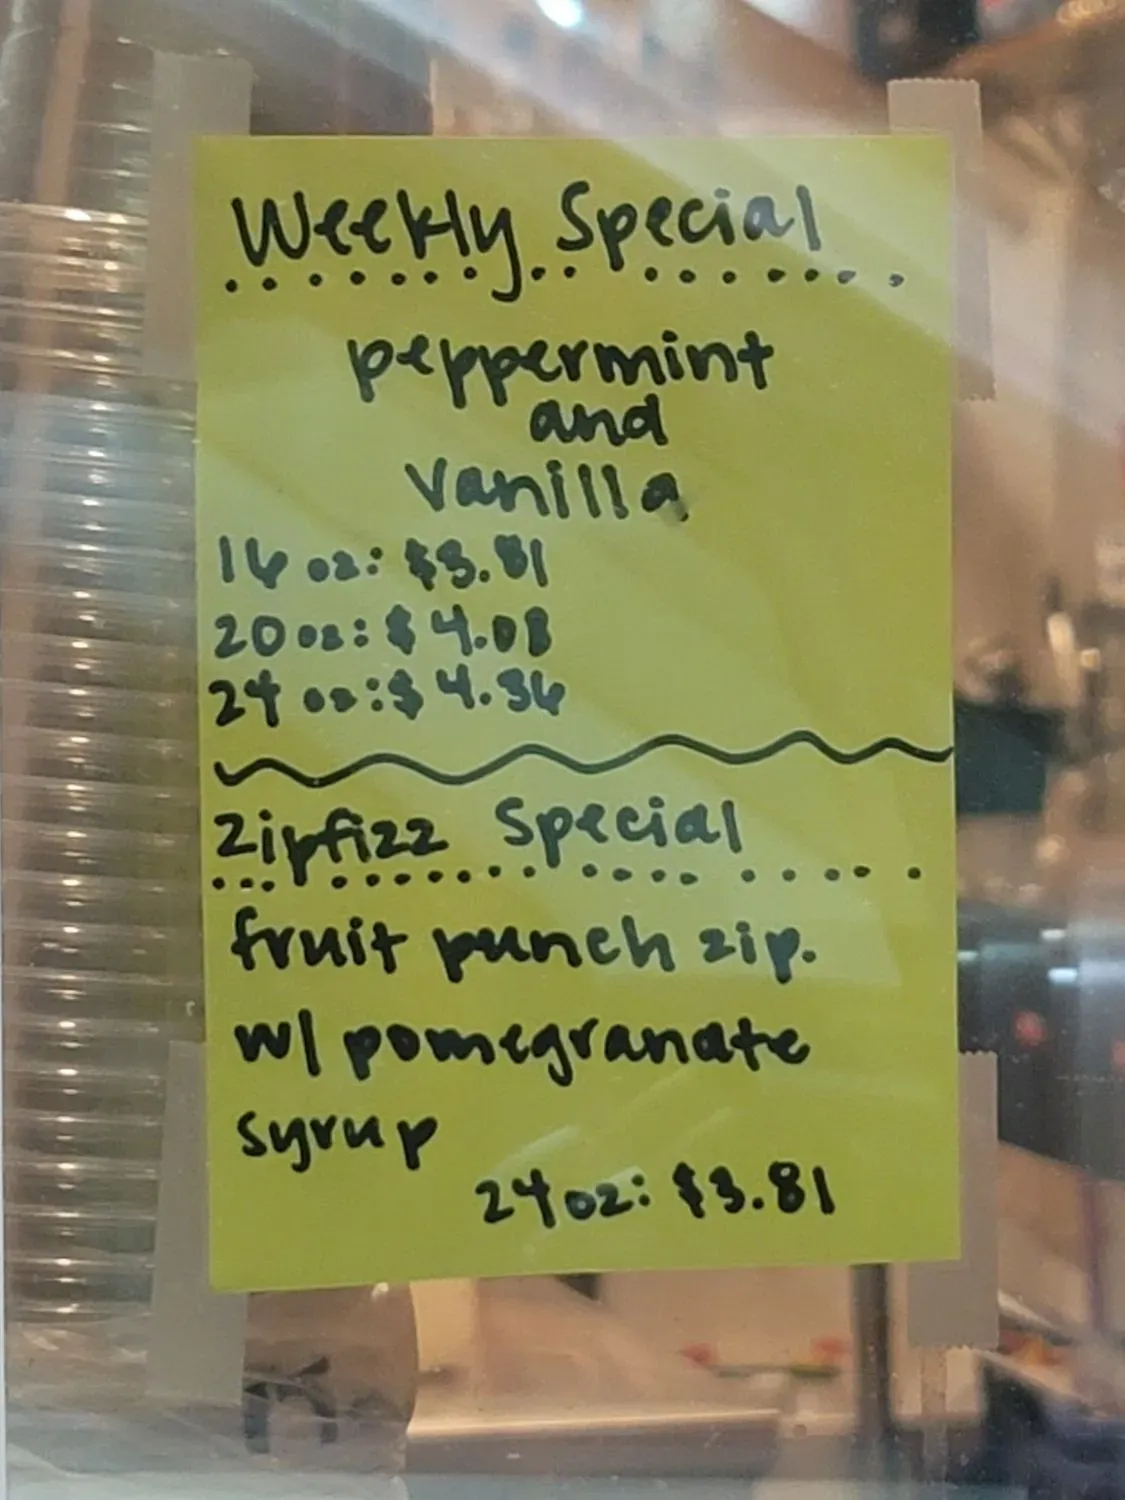 Weekly Special
peppermint
and
vanilla
16 oz: $3.81
20 oz: $4.08
24 oz: $4.36
Zipfizz Special
fruit punch zip.
w/ pomegranate
syrup
24oz: $3.81